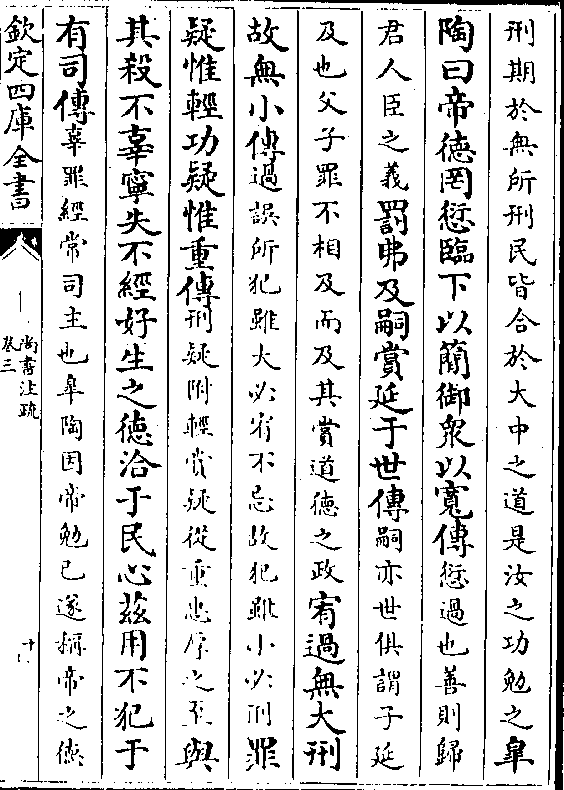 刑期於無所刑民皆合於大中之道是汝之功勉之臯
陶曰帝德罔愆臨下以簡御衆以寬傳愆過也善則歸
君人臣之義罰弗及嗣賞延于世傳嗣亦世俱謂子延
及也父子罪不相及而及其賞道德之政宥過無大刑
故無小傳過誤所犯雖大必宥不忌故犯雖小必刑罪
疑惟輕功疑惟重傳刑疑附輕賞疑從重忠厚之至與
其殺不辜寧失不經好生之德洽于民心茲用不犯于
有司傳辜罪經常司主也臯陶因帝勉已遂稱帝之德
欽定四庫全書
尚書注疏
卷三